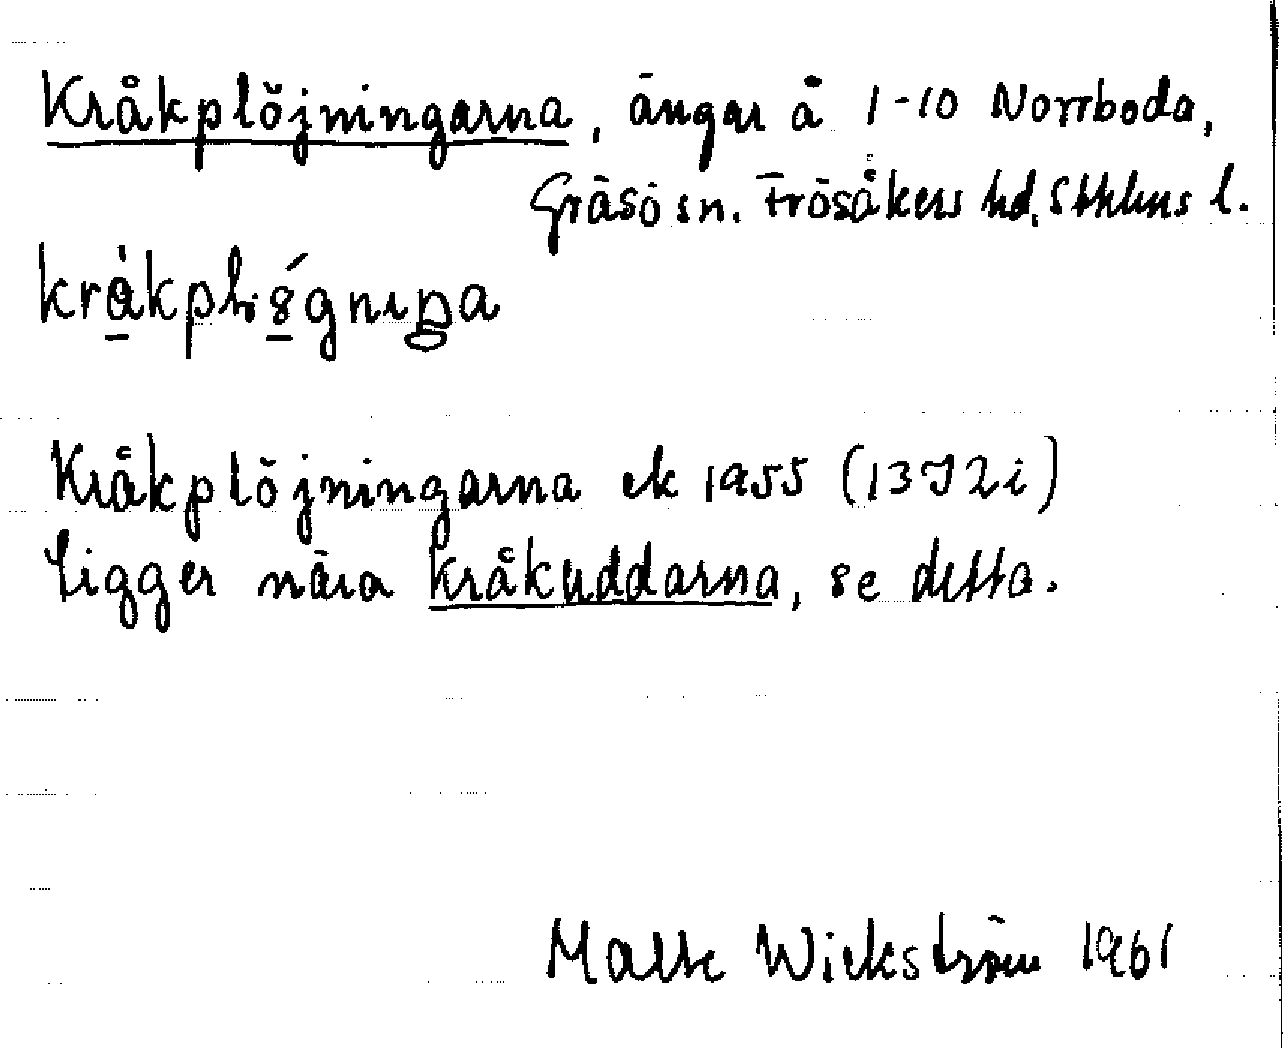 Kråkplöjningarna, ängar å 1-10 Norrboda,
Gräsö sn. Frösåkers hd, Sthlms l.
Kråkplöjningarna ek 1955 (13 I 2 i)
ligger nära Kråkuddarna, se detta.
Malte Wickström 1961